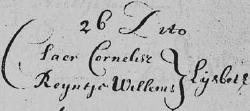 26 Dito
Jaer Cornelisz
Reyntje Willems } Lijsbett